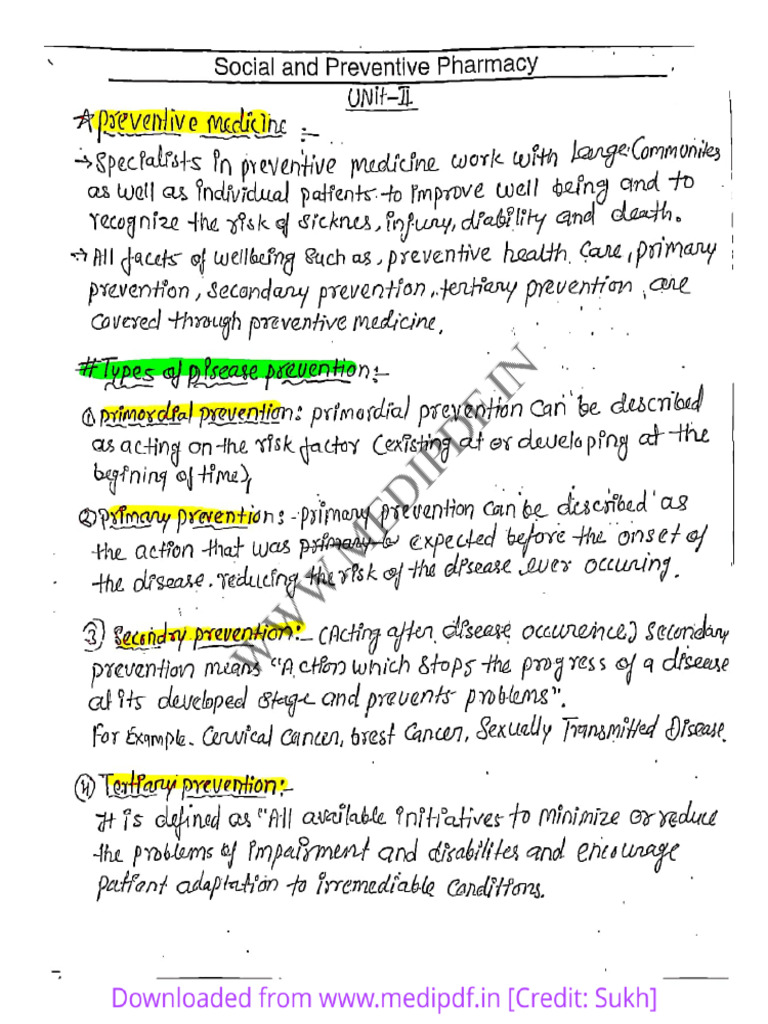 Social and Preventive Pharmacy
UNit-II
* Preventive medicine :-
→ Specialists in preventive medicine work with Large Communites
as well as individual patients to improve well being and to
recognize the risk of sicknes, injury, diability and death.
→ All facets of wellbeing such as, preventive health care, primary
prevention, secondary prevention, tertiary prevention, are
covered through preventive medicine.
# Types of Disease prevention:-
① primordial prevention: primordial prevention can be described
as acting on the risk factor (existing at or developing at the
begfining of time),
② Primary prevention: - primary prevention can be described as
the action that was primary is expected before the onset of
the disease. reducing the risk of the disease ever occuring.
3) Secondry prevention:- (Acting after disease occurence) Secondary
prevention means "Action which stops the progress of a disease
at its developed stage and prevents problems".
For Example. Cervical cancer, brest Cancer, Sexually Transmitted Disease.
④ Tertiary prevention:-
It is defined as "All available initiatives to minimize or reduce
the problems of impairment and disabilites and encourage
patient adaptation to irremediable conditions.
WWW.MEDIPDF.IN
Downloaded from www.medipdf.in [Credit: Sukh]